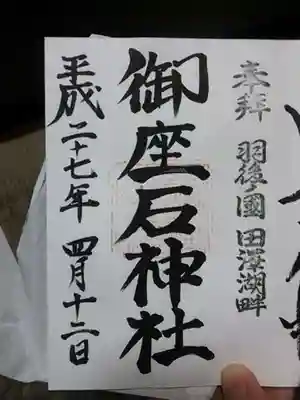 奉拝 羽後國 田澤湖畔
御座石神社
平成二十七年 四月十二日